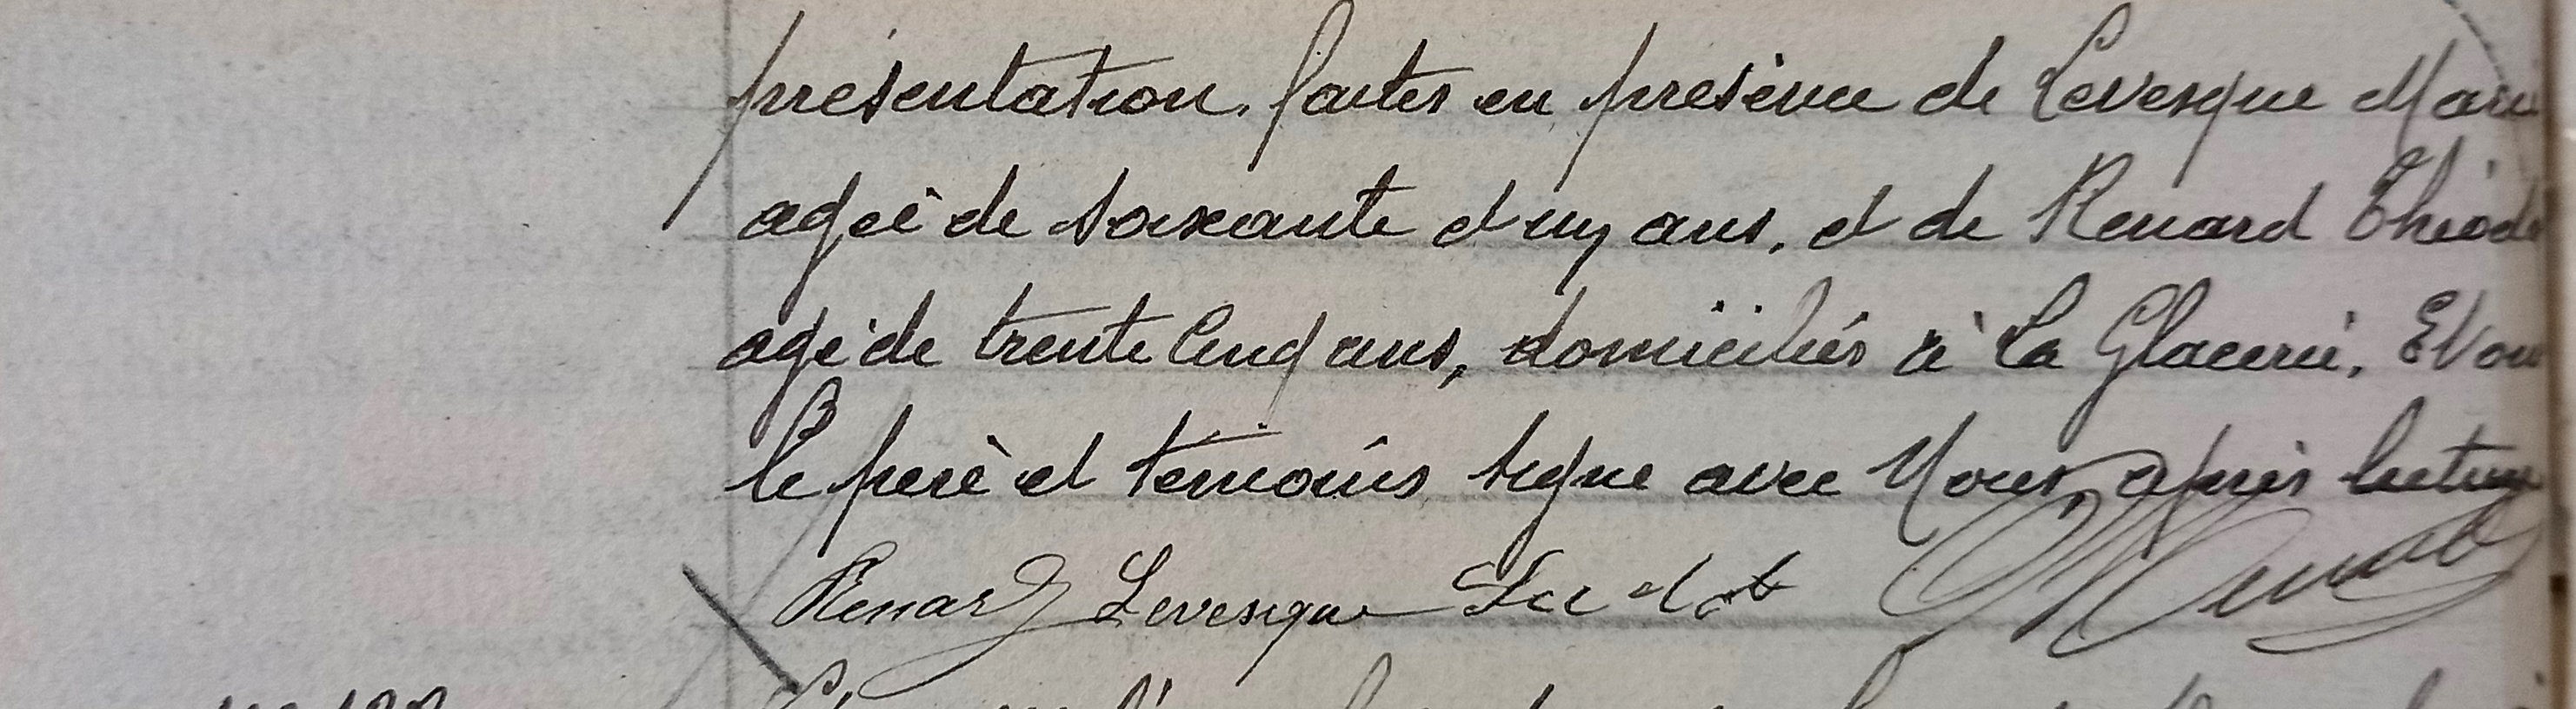 présentation. faites en présence de Levesque Mari
agée de soixante et un ans, et de Renard Théodo
agé de trente cinq ans, domiciliés à La Glacerie. Et on
le père et témoins signé avec Nous, après lecture
Renard Levesque